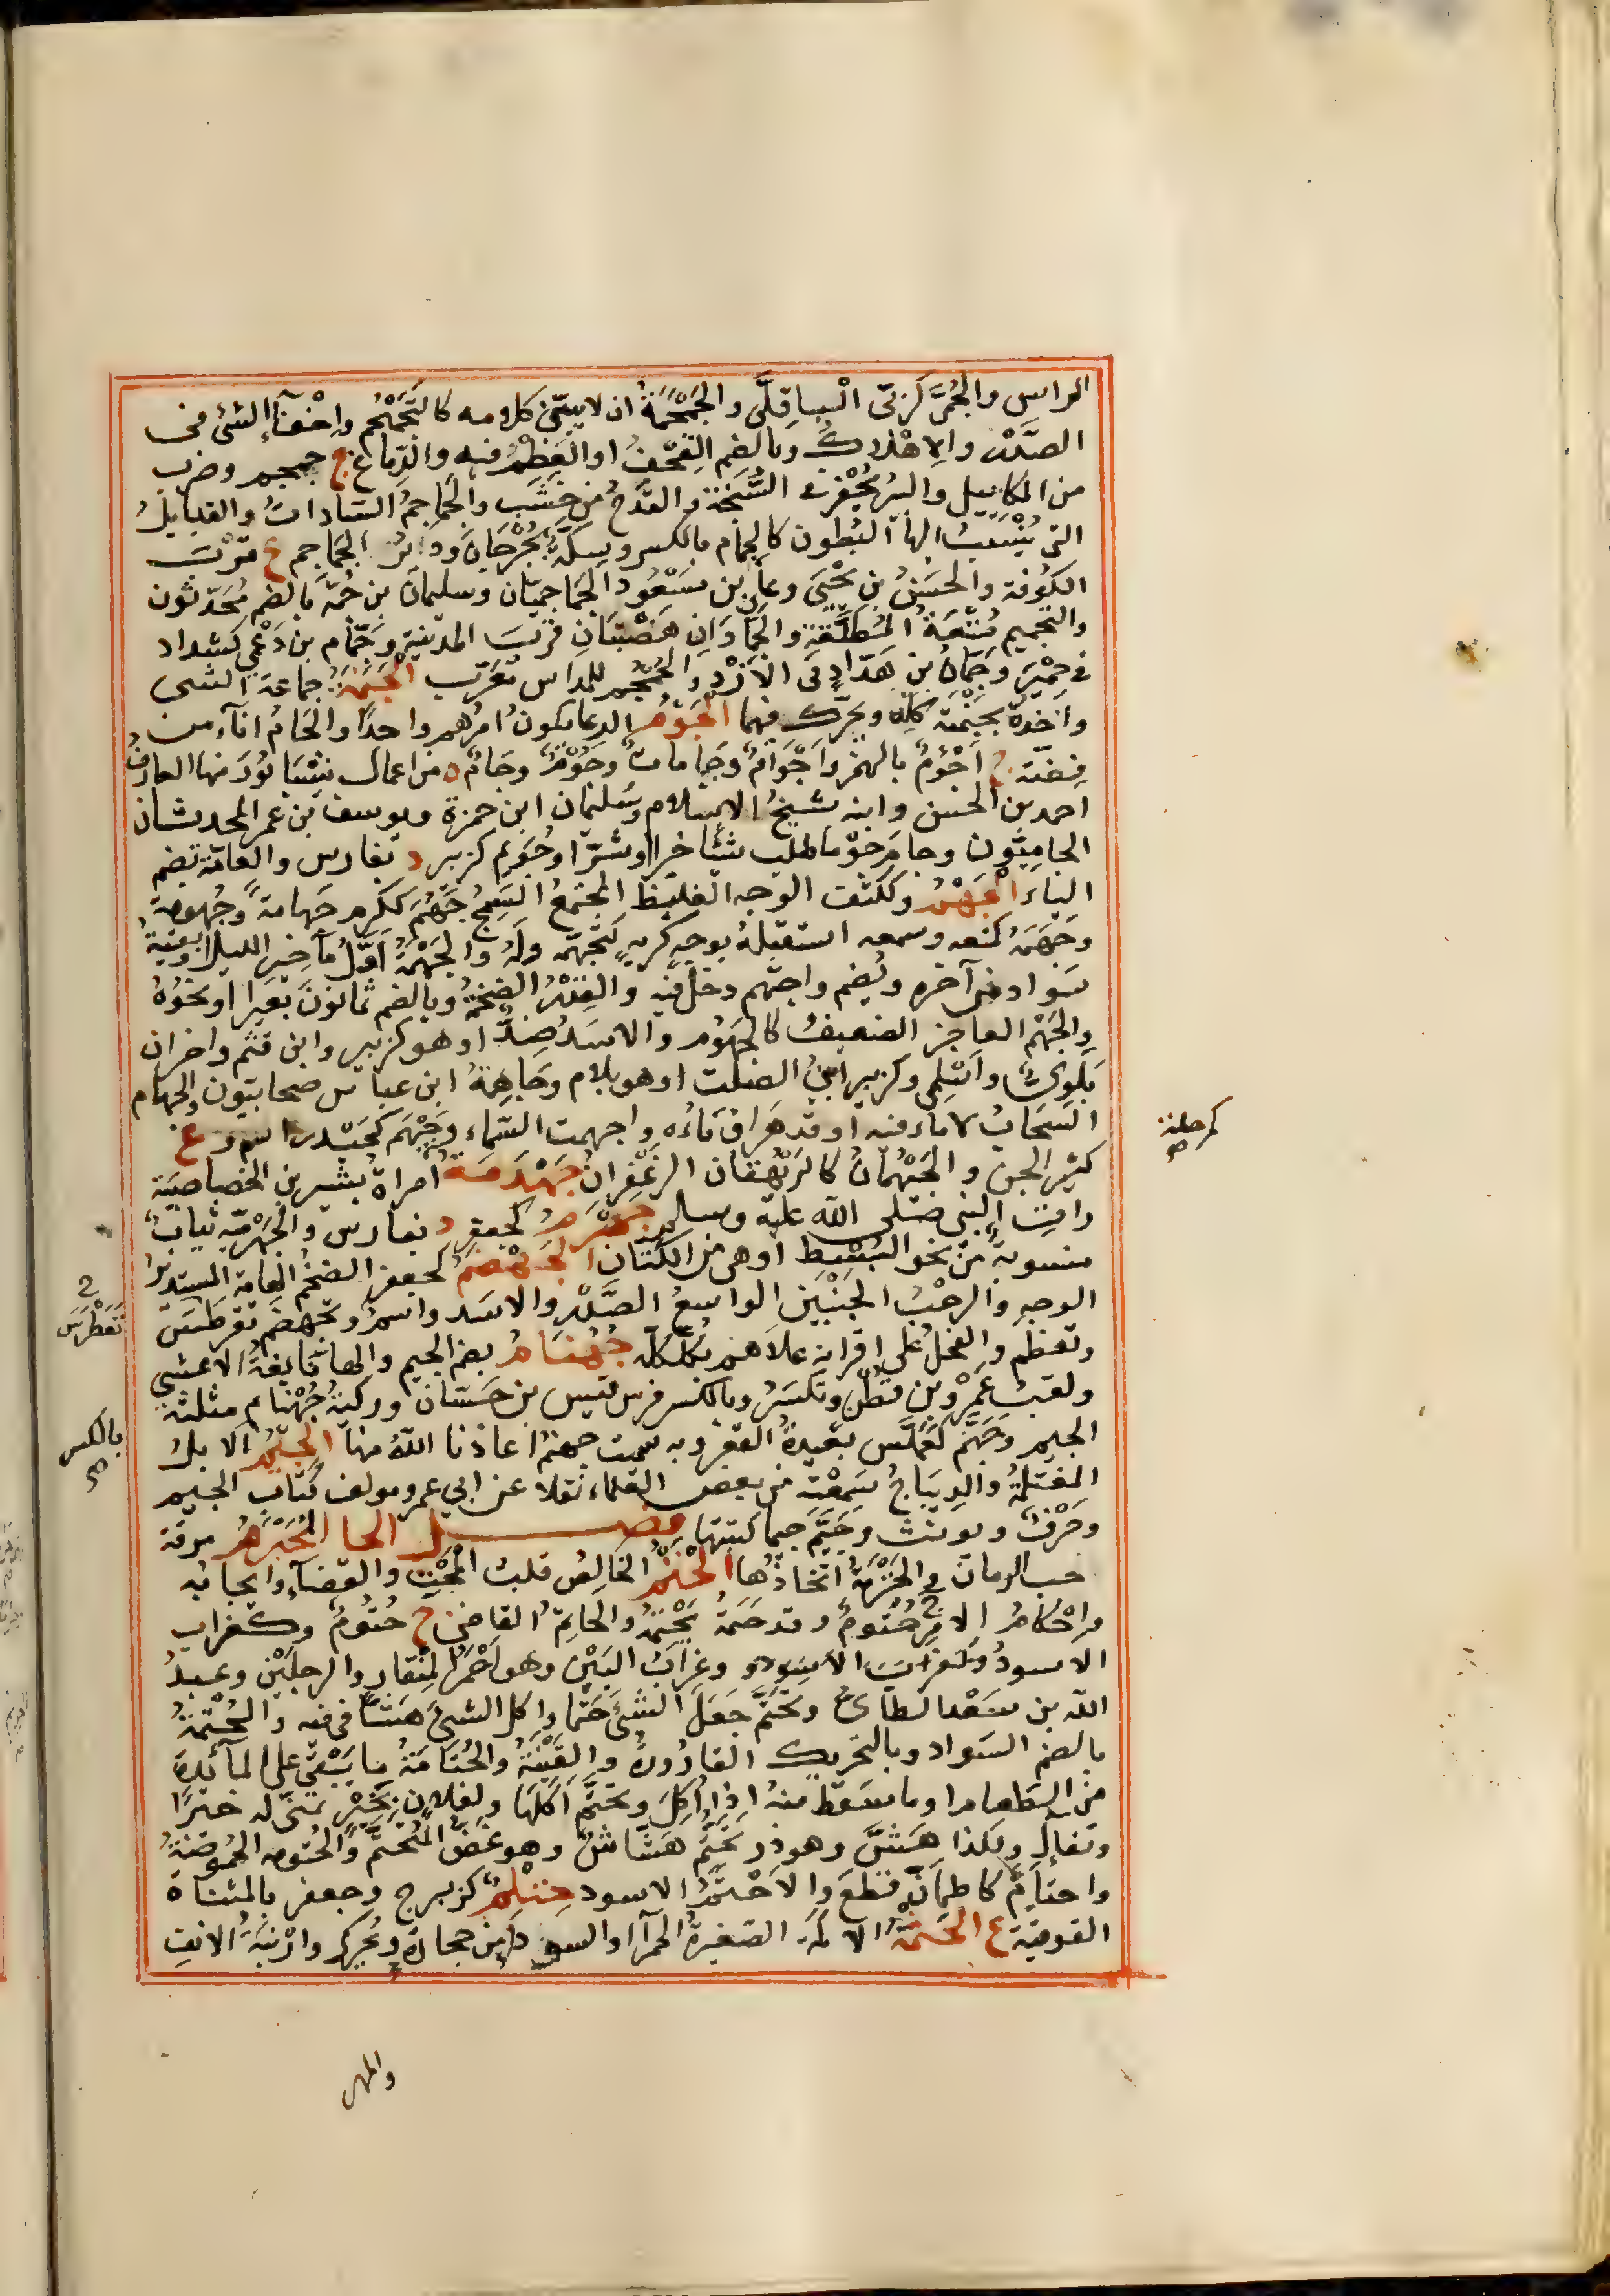 الراس والجُمَّى كرُبّى الباقِلَّى والجَمْجَمَةُ ان لا يبيّن كلامه كالتَجَمْجُمِ واِخْفَآءُ الشئ فى
الصَّدْر والاِهْلاكُ وبالضم القِحْفُ او العَظْمُ فيه والدِماغ ج جمجم وضرب
من المكاييل والبئر تُحْفَر فى السَّبَخَة والقَدَحُ من خَشَب والجَماجمُ السادات والقبايلُ
التى يُنْسَبُ اليها البُطون كالجِمام بالكسر وسِكّة بجُرْجانَ وديرُ الجماجم ع قُرْبَ
الكوفة والحسنُ بن يَحْيَى وعلى بن مسعود الجَماجميّان وسليمانُ بن جُمَّة بالضم مُحَدّثون
والتجميم مُتْعَةُ المُطلَّقة والجَمّاوانِ هَضْبتانِ قربَ المدينة وجَمّام بن دُعْمِى كشداد
فى حِمْيَر وجَمّانُ بن هَدّادٍ فى الاَزْدِ والجُمْجُم للمداس مُعَرّب الجَنَمَةُ جماعة الشى
واخذهُ بجَنْمَتِه كلّه ويحرّك فيهما الجَوْم الرعا يكون امرُهم واحدًا والجَامُ اناء من
فضة ج اَجْؤُمٌ بالهمز واَجْوامٌ وجاماتٌ وجُوْمٌ وجَامُ ة من اعمال نيسَابُورَ منها العارف
احمد بن الحسن وابنه شيخُ الاسلام وسُليمان ابن حمزة ويوسف بن عمر المحدثان
الجامِيّون وجامَ جَوْمًا طلب شيئا خيرا اوشرّا وجُوَيم كزبير د بفارس والعامّة تضم
الياء الجَهْمُ وككتف الوجه الغليظ المجتمعُ السَمِجُ جَهُمَ ككرم جَهامةً وجُهومةً
وجَهَمَهُ كمنعه وسمعه استقبلهُ بوجهٍ كريهٍ كتجهّمه ولهُ والجَهْمَةُ اَوّلُ مآخير الليل او بقيةُ
سَواد من آخره ويُضم واجتهم دخل فيه والقِدْرُ الضخمةُ وبالضم ثمانونَ بَعيرا او نحوُهُ
والجَهْمُ العاجز الضعيفُ كالجَهُوم والاسَدُ ضِدٌّ او هو كزبير وابن قثم واخران
بَلوىٌّ واَسْلمى وكزبير ابنُ الصلت او هو بلام وجَاهِمَةُ ابن عباس صحابيّون والجهام
السَحَابُ لا ماء فيه او قد هَراق مَاءَه واجهمت السّماء وجَيْهَم كحيدر اسم وع
كثير الجن والجَيْهُمانُ كالرَيْهُقان الزعْفران جَهْدَمَة امراةُ بشير بن الخصاصيّة
رات النبى صلى الله عليه وسلم جَهْرَمُ كجعفر د بفارس والجَهْرَميّة ثيابٌ
منسوبةٌ من نحو البُسُطِ او هى من الكتّان الجَهْضَم كجعفر الضخمُ الهامةِ المستديرُ
الوجهِ والرحْبُ الجَنْبَيْنِ الواسعُ الصَّدْر والاسَد واسمٌ وتجهضَم تغرطس
وتعظّم والفحلُ على اقرانه علاهم بكَلْكَلِه جُهُنّامُ بضم الجيم والهاء تابِعَةُ الاعشى
ولقبُ عَمْرِو بن قطَن وتكسَرُ وبالكسر فرسُ قيس بن حَسّان وركيّةٌ جُهُنّام مثلثة
الجيم وجَهَنَّم كعَمَلَّس بعيدةُ القعر وبه سميت جهنم اعاذنا اللّهُ منها الجِيْمُ الابلُ
المغتلمةُ والديباجُ سَمِعْتُهُ من بعض العلماء نقلا عن ابى عمرو مولف كتاب الجيم
وحَرْفٌ ويونث وجَيَّمَ جيما كتبتها فصـــل الحا المُحَبْرَمُ مرقة
حب الرمان والحَبْرَمَةُ اتخاذُها الحَتْمُ الخالصُ قلبُ المَحْتِ والقضآءُ وايجابُه
واِحْكام الامر ج حُتُومٌ وقد حَتَمَهُ يَحْتِمُهُ والحاتِمُ القاضى ج حُتُومٌ وكغراب
الاسودُ وكغراب الاسود وغرابُ البَيْن وهو احْمَرُ المِنْقار والرجلين وعبدُ
الله بن سَعْد الطائىُّ وتحتَّمَ جَعَلَ الشئَ حَتْمًا واكل الشئَ هَشًّا فى فيه والحُتْمَةُ
بالضم السواد وبالتحريك القارُورةُ والقَيْنةُ والحُتَامَةُ ما يَبْقى على المآئدة
من الطعام او ما سَقط منهُ اِذا اُكِلَ وتحتَّم اكَلَها ولفلان بخَيْرٍ تمنّى له خيرًا
وتفاءل ولكذا هَشَّ وهو ذو تحتُّمٍ هشّاشٌ وهو غَضُّ المُتَحتَّمِ والحُتومه الحُموضةُ
واحتاَمَّ كاطمانّ قطعَ والاَحْتَمُ الاسود حِتْلِمٌ كزبرج وجعفر بالمثناة
الفوقية ع الحَثْمَة الاكمة الصغيرةُ الحمرآءُ او السوداء من حجارة ويُحرّك وارْنبَةُ الانف
كرحلة
صح
تَغَطْرَسَ
بالكسر
صح
والمهر